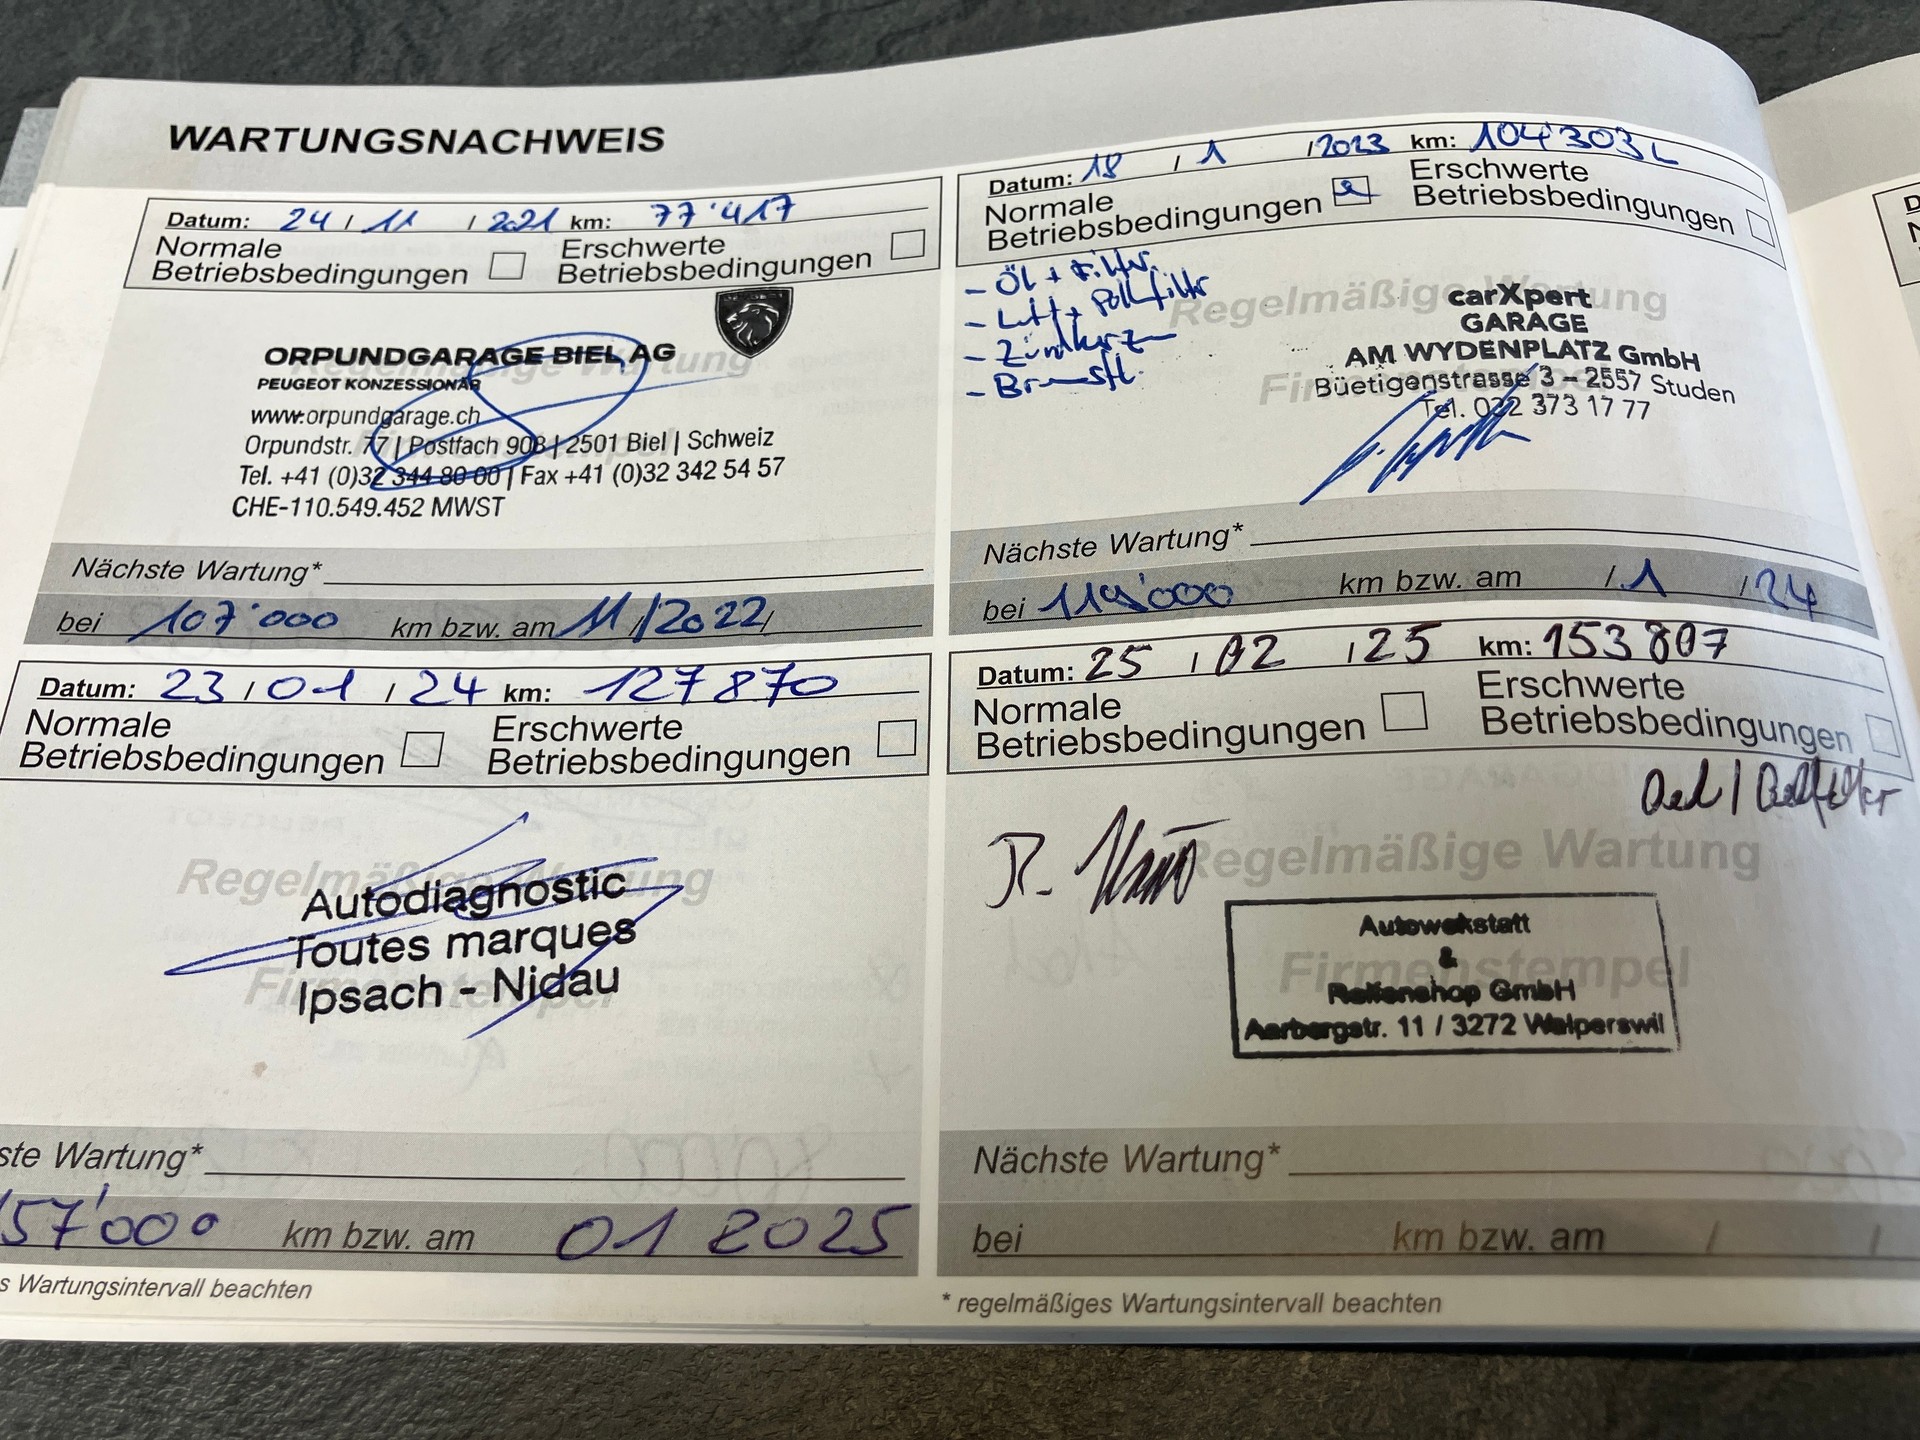 WARTUNGSNACHWEIS
Datum: 24 / 11 / 2021 km: 77'417
Normale Betriebsbedingungen
Erschwerte Betriebsbedingungen
Regelmäßige Wartung
Firmenstempel
ORPUNDGARAGE BIEL AG
PEUGEOT KONZESSIONÄR
www.orpundgarage.ch
Orpundstr. 77 | Postfach 908 | 2501 Biel | Schweiz
Tel. +41 (0)32 344 80 00 | Fax +41 (0)32 342 54 57
CHE-110.549.452 MWST
Nächste Wartung*
bei 107'000 km bzw. am 11/2022/
Datum: 18 / 1 / 2023 km: 104'303
Normale Betriebsbedingungen
Erschwerte Betriebsbedingungen
- Öl + Filter
- Luft + Pollfilter
- Zündkerzen
- Bremsfl.
Regelmäßige Wartung
Firmenstempel
carXpert
GARAGE
AM WYDENPLATZ GmbH
Büetigenstrasse 3 – 2557 Studen
Tel. 032 373 17 77
Nächste Wartung*
bei 119'000 km bzw. am / 1 / 24
Datum: 23 / 01 / 24 km: 127870
Normale Betriebsbedingungen
Erschwerte Betriebsbedingungen
Regelmäßige Wartung
Firmenstempel
Autodiagnostic
Toutes marques
Ipsach - Nidau
ste Wartung*
157'000 km bzw. am 01 2025
s Wartungsintervall beachten
Datum: 25 / 02 / 25 km: 153807
Normale Betriebsbedingungen
Erschwerte Betriebsbedingungen
Regelmäßige Wartung
Firmenstempel
Autowekstatt
&
Reifenshop GmbH
Aarbergstr. 11 / 3272 Walperswil
Nächste Wartung*
bei km bzw. am / /
* regelmäßiges Wartungsintervall beachten